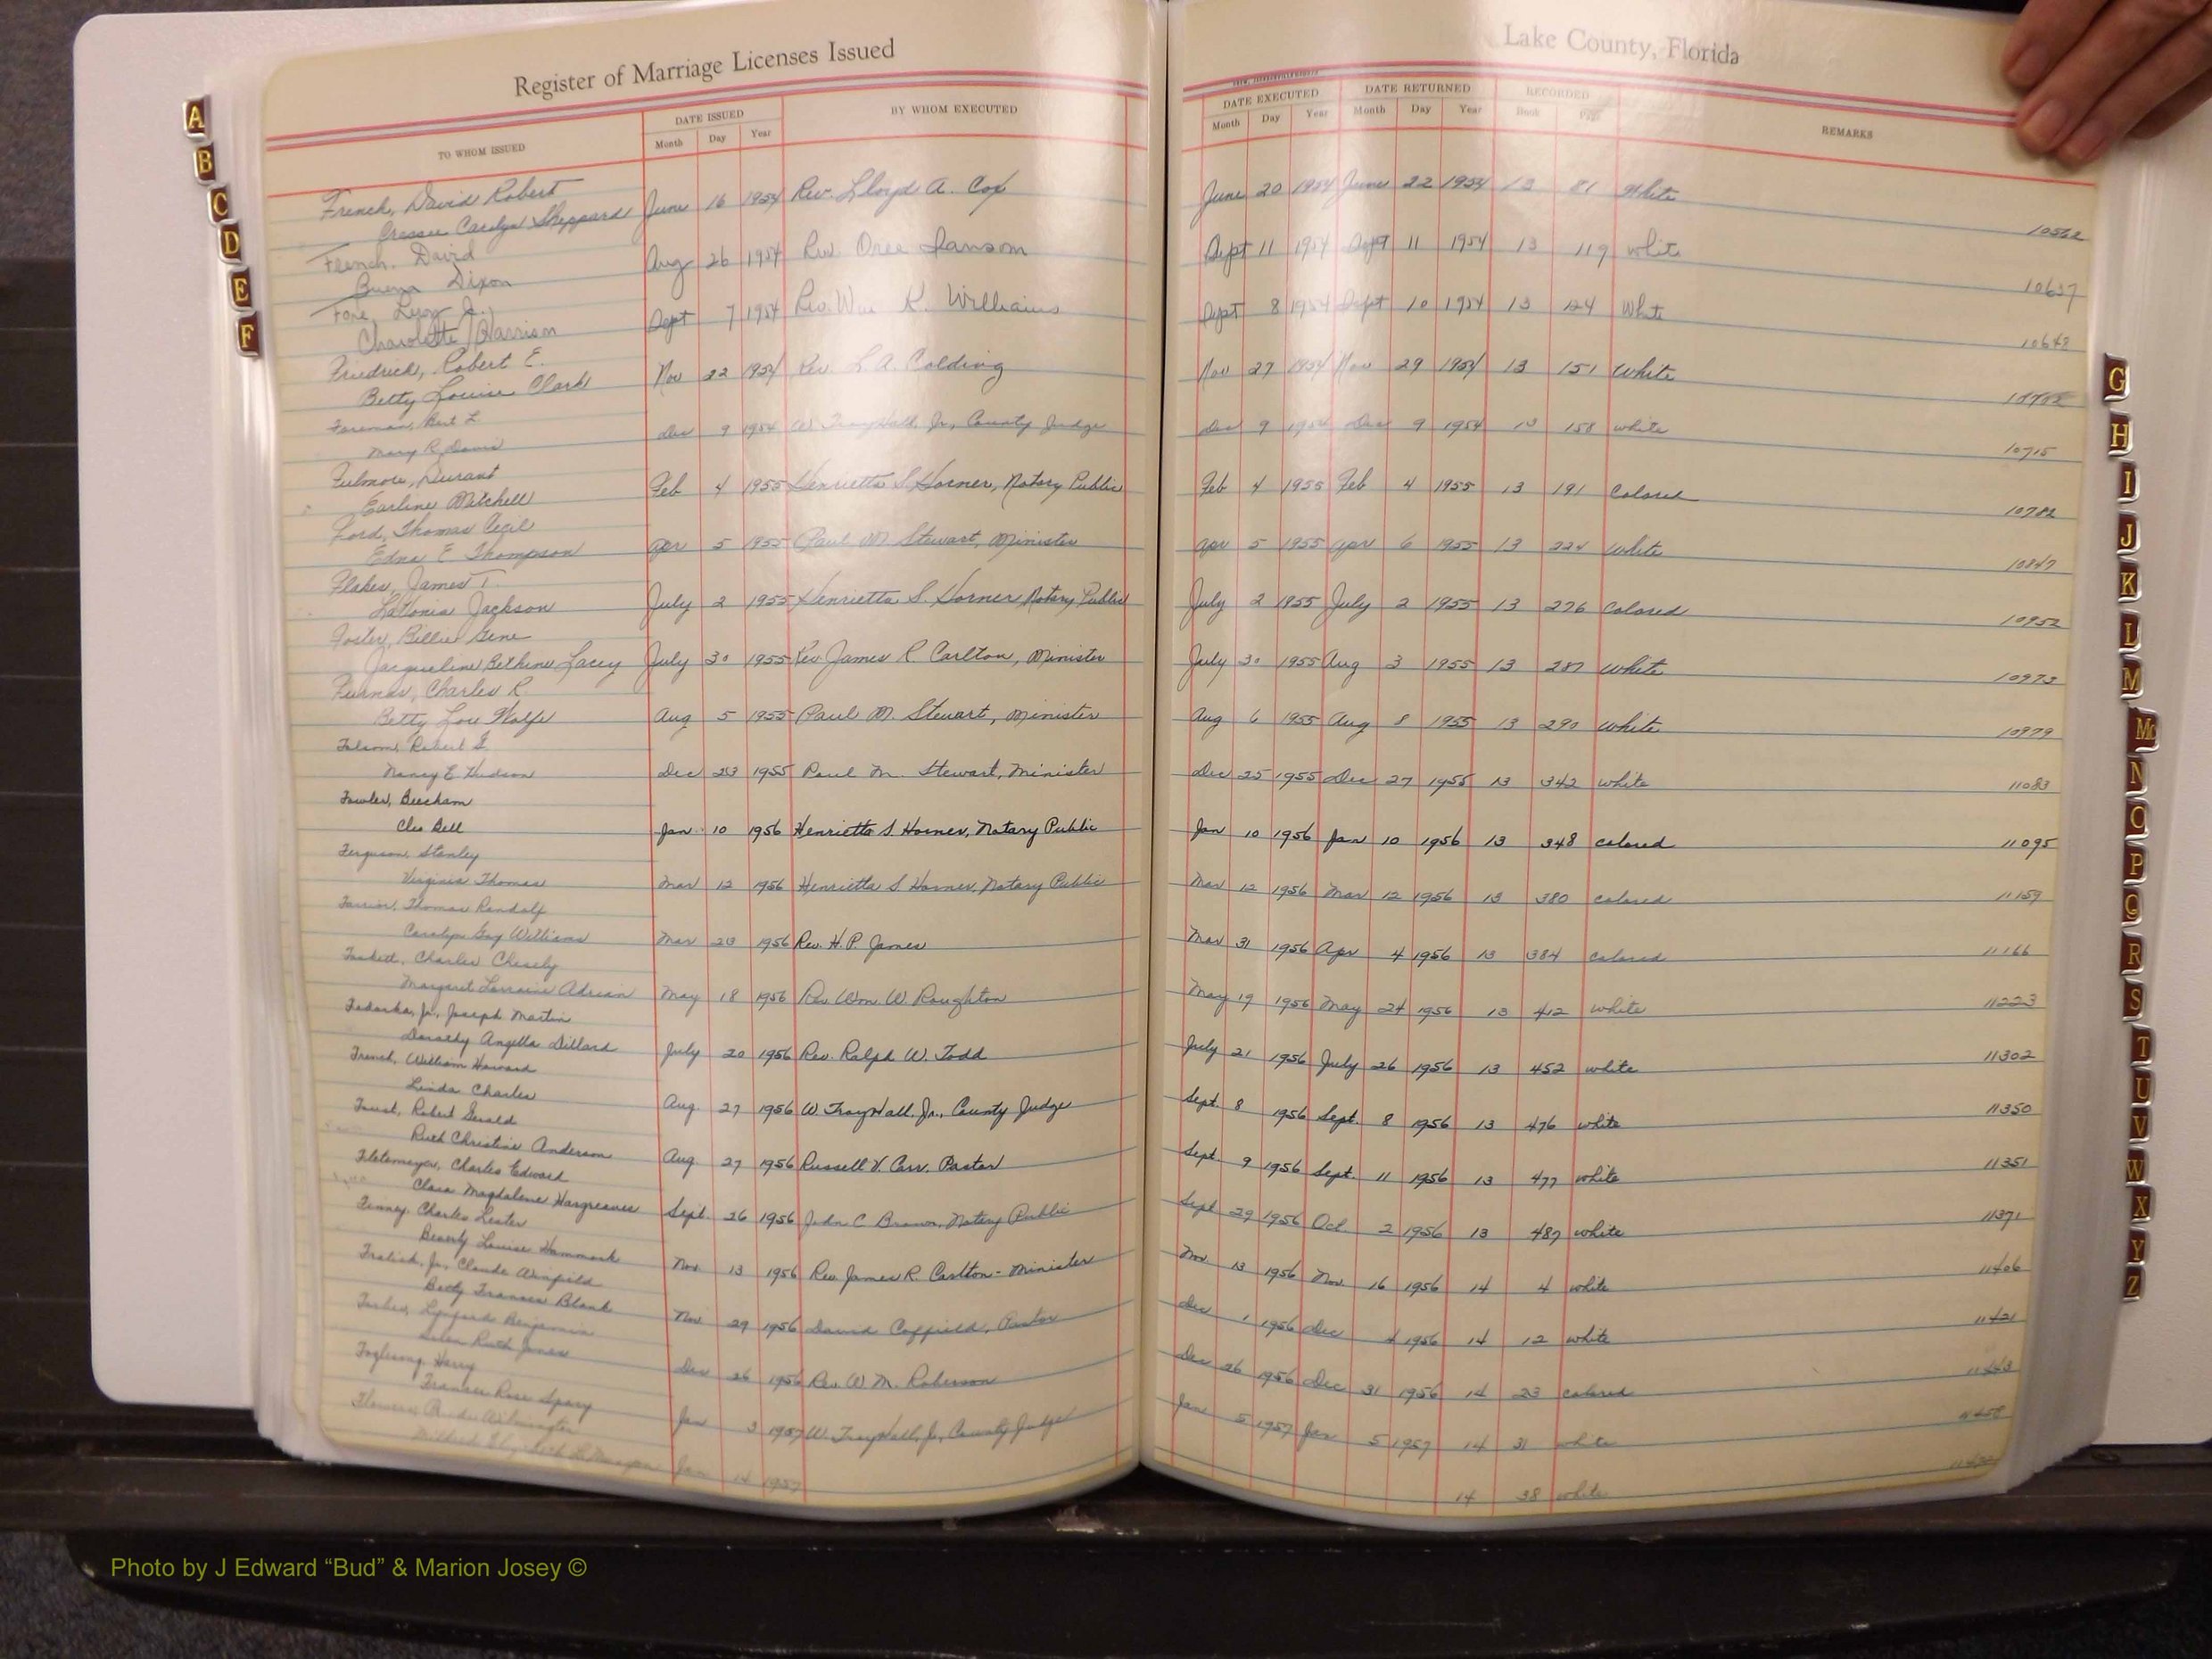 Register of Marriage Licenses Issued
Lake County, Florida
TO WHOM ISSUED DATE ISSUED Month Day Year BY WHOM EXECUTED DATE EXECUTED Month Day Year DATE RETURNED Month Day Year RECORDED Book Page REMARKS
French, David Robert
Carolyn Sheppard June 16 1954 Rev. Lloyd A. Cox June 20 1954 June 22 1954 13 81 White 10562
French, David
Buena Dixon Aug 26 1954 Rev. Oree Ransom Sept 11 1954 Sept 11 1954 13 119 White 10637
Charolette Harrison Sept 7 1954 Rev. Wm K. Williams Sept 8 1954 Sept 10 1954 13 124 White 10648
Friedrick, Robert E.
Betty Louise Clark Nov 22 1954 Rev. L A. Colding Nov 27 1954 Nov 29 1954 13 151 White
Foreman, Bert L.
Mary R. Davis Dec 9 1954 W. Troy Hall, Jr., County Judge Dec 9 1954 Dec 9 1954 13 158 White 10715
Fulmore, Durant
Earline Mitchell Feb 4 1955 Henrietta S. Horner, Notary Public Feb 4 1955 Feb 4 1955 13 191 Colored 10782
Ford, Thomas Cecil
Edna E. Thompson Apr 5 1955 Paul M. Stewart, Minister Apr 5 1955 Apr 6 1955 13 224 White 10847
Flakes, James T.
LaVonia Jackson July 2 1955 Henrietta S. Horner, Notary Public July 2 1955 July 2 1955 13 276 Colored 10952
Foster, Billie Gene
Jacqueline Bethine Lacey July 30 1955 Rev James R. Carlton, Minister July 30 1955 Aug 3 1955 13 287 White 10973
Charles R.
Betty Lou Wolfe Aug 5 1955 Paul M. Stewart, Minister Aug 6 1955 Aug 8 1955 13 290 White 10979
Folsom, Robert
Nancy E. Hudson Dec 23 1955 Paul M. Stewart, Minister Dec 25 1955 Dec 27 1955 13 342 white 11083
Fowler, Beecham
Cleo Bell Jan 10 1956 Henrietta S. Horner, Notary Public Jan 10 1956 Jan 10 1956 13 348 colored 11095
Ferguson, Stanley
Virginia Thomas Mar 12 1956 Henrietta S. Horner, Notary Public Mar 12 1956 Mar 12 1956 13 380 colored 11159
Farrior, Thomas Randolf
Carolyn Gay Williams Mar 23 1956 Rev. H. P. James Mar 31 1956 Apr 4 1956 13 384 colored 11166
Charles Chesely
Margaret Lorraine Adrian May 18 1956 Rev. Wm. W. Roughton May 19 1956 May 24 1956 13 412 white 11223
Fedorka, Jr., Joseph Martin
Dorothy Angella Dillard July 20 1956 Rev. Ralph W. Todd July 21 1956 July 26 1956 13 452 white 11302
French, William Howard
Linda Charles Aug. 27 1956 W. Troy Hall, Jr., County Judge Sept. 8 1956 Sept. 8 1956 13 476 white 11350
Foust, Robert Gerald
Ruth Christine Anderson Aug 27 1956 Russell V. Carr, Pastor Sept. 9 1956 Sept. 11 1956 13 477 white 11351
Fletemeyer, Charles Edward
Clara Magdalene Hargreaves Sept. 26 1956 John C. Brown, Notary Public Sept 29 1956 Oct. 2 1956 13 487 white 11371
Finney, Charles Lester
Beverly Louise Hammock Nov 13 1956 Rev. James R. Carlton - Minister Nov. 13 1956 Nov. 16 1956 14 4 white 11406
Fralick, Jr., Claude Winfield
Betty Frances Blank Nov 29 1956 David Coffield, Pastor Dec 1 1956 Dec 4 1956 14 12 white 11421
Benjamin
Ruth Jones Dec 26 1956 Rev. W. M. Roberson Dec 26 1956 Dec 31 1956 14 23 colored
Foglesong, Harry
Frances Rose Spacy Jan 3 1957 W. Troy Hall, Jr., County Judge Jan 5 1957 Jan 5 1957 14 31 white
Jan 14 1957 14 38 white
A
B
C
D
E
F
G
H
I
J
K
L
M
Mc
N
O
P
Q
R
S
T
U
V
W
X
Y
Z
Photo by J Edward “Bud” & Marion Josey ©